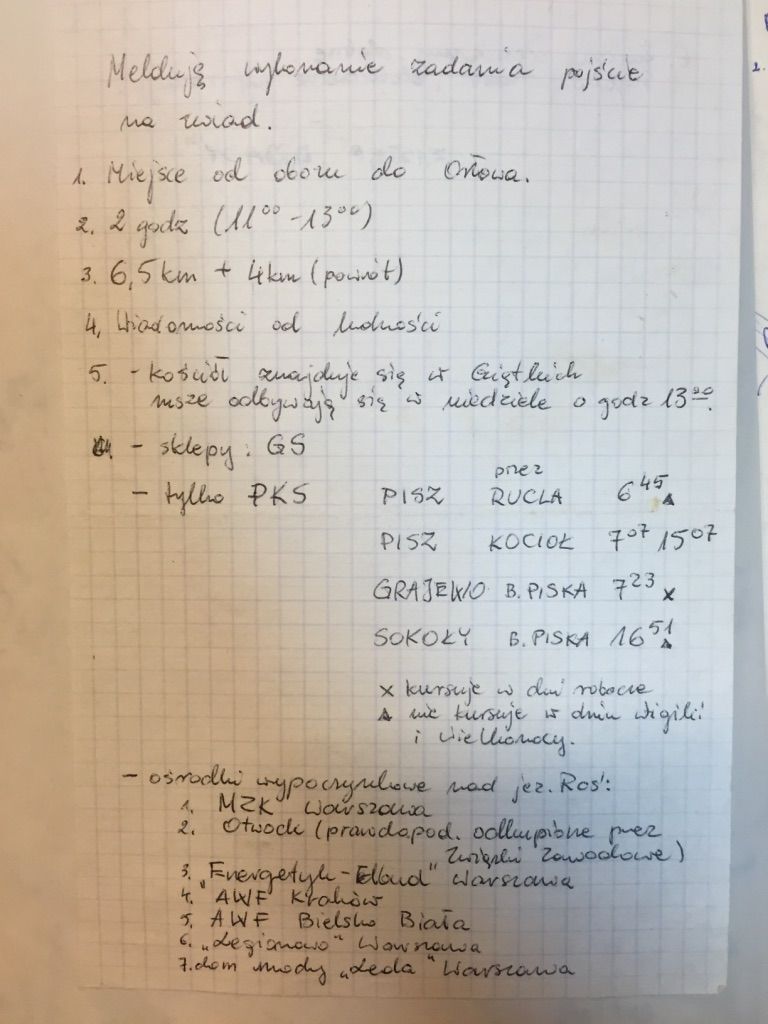 Meldują wykonanie zadania pójście
na zwiad.
1. Miejsce od obozu do Orłowa.
2. 2 godz (11⁰⁰ - 13⁰⁰)
3. 6,5 km + 4 km (powrót)
4, Wiadomości od ludności
5. - kościół znajduje się w
msze odbywają się w niedziele o godz 13⁰⁰.
- sklepy: GS
przez
- tylko PKS PISZ RUCLA 6⁴⁵ ▲
PISZ KOCIOŁ 7⁰⁷ 15⁰⁷
GRAJEWO B. PISKA 7²³ x
SOKOŁY B. PISKA 16⁵¹ ▲
x kursuje w dni robocze
▲ nie kursuje w dniu wigilii
i Wielkanocy.
- ośrodki wypoczynkowe nad jez. Roś:
1. MZK Warszawa
2. Otwock (prawdopod. odkupione przez
Związki Zawodowe)
3. „Energetyk-Elbud" Warszawa
4. AWF Kraków
5, AWF Bielsko Biała
6. „Legionowo" Warszawa
7. dom mody „Leda" Warszawa